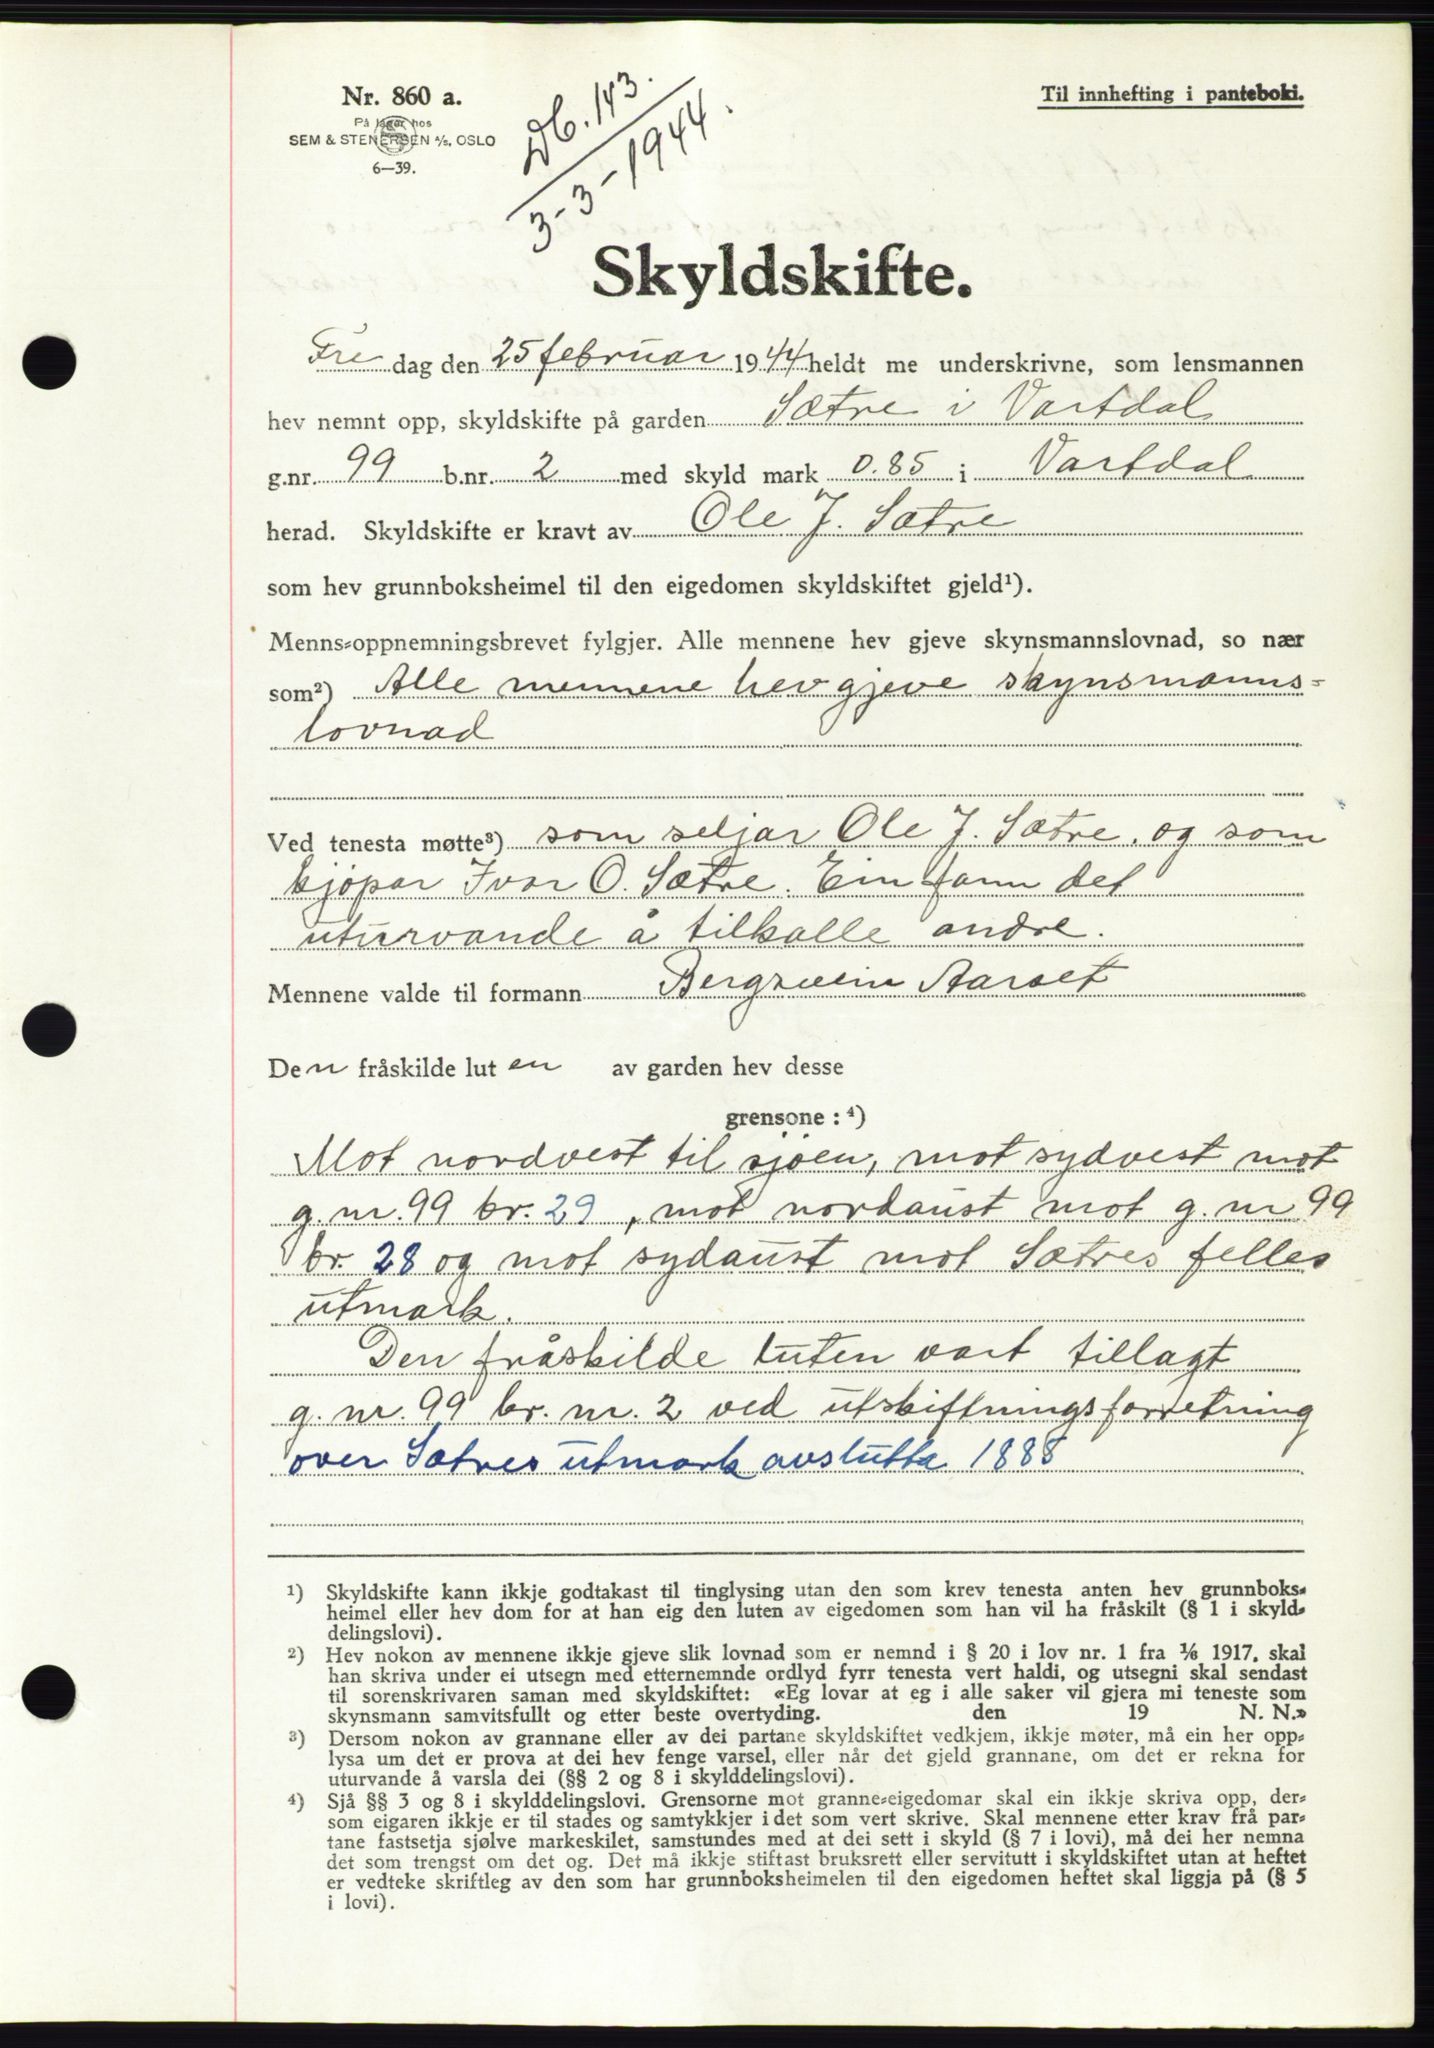 Nr. 860 a.
På lager hos
SEM & STENERSEN A/S, OSLO
6—39.
Db. 143.
3-3-1944.
Til innhefting i panteboki.
Skyldskifte.
Fre dag den 25 februar 1944 heldt me underskrivne, som lensmannen
hev nemnt opp, skyldskifte på garden Sætre i Vartdal
g.nr. 99 b.nr. 2 med skyld mark 0.85 i Vartdal
herad. Skyldskifte er kravt av Ole J. Sætre
som hev grunnboksheimel til den eigedomen skyldskiftet gjeld¹).
Menns-oppnemningsbrevet fylgjer. Alle mennene hev gjeve skynsmannslovnad, so nær
som²) Alle mennene hev gjeve skynsmanns-
lovnad
Ved tenesta møtte³) som seljar Ole J. Sætre, og som
kjøpar Ivar O. Sætre. Ein fann det
uturvande å tilkalle andre.
Mennene valde til formann Bergsvein Aarset
Den fråskilde luten av garden hev desse
grensone : ⁴)
Mot nordvest til sjøen, mot sydvest mot
g. nr. 99 br. 29, mot nordaust mot g. nr 99
br. 28 og mot sydaust mot Sætres felles
utmark.
Den fråskilde luten vart tillagt
g. nr. 99 br. nr. 2 ved utskiftningsforretning
over Sætres utmark avslutta 1888
¹) Skyldskifte kann ikkje godtakast til tinglysing utan den som krev tenesta anten hev grunnboks-
heimel eller hev dom for at han eig den luten av eigedomen som han vil ha fråskilt (§ 1 i skyld-
delingslovi).
²) Hev nokon av mennene ikkje gjeve slik lovnad som er nemnd i § 20 i lov nr. 1 fra ¹/₆ 1917, skal
han skriva under ei utsegn med etternemnde ordlyd fyrr tenesta vert haldi, og utsegni skal sendast
til sorenskrivaren saman med skyldskiftet: «Eg lovar at eg i alle saker vil gjera mi teneste som
skynsmann samvitsfullt og etter beste overtyding. den 19 N. N.»
³) Dersom nokon av grannane eller av dei partane skyldskiftet vedkjem, ikkje møter, må ein her opp-
lysa um det er prova at dei hev fenge varsel, eller når det gjeld grannane, om det er rekna for
uturvande å varsla dei (§§ 2 og 8 i skylddelingslovi).
⁴) Sjå §§ 3 og 8 i skylddelingslovi. Grensorne mot granne-eigedomar skal ein ikkje skriva opp, der-
som eigaren ikkje er til stades og samtykkjer i det som vert skrive. Skal mennene etter krav frå par-
tane fastsetja sjølve markeskilet, samstundes med at dei sett i skyld (§ 7 i lovi), må dei her nemna
det som trengst om det og. Det må ikkje stiftast bruksrett eller servitutt i skyldskiftet utan at heftet
er vedteke skriftleg av den som har grunnboksheimelen til den eigedomen heftet skal liggja på (§ 5
i lovi).